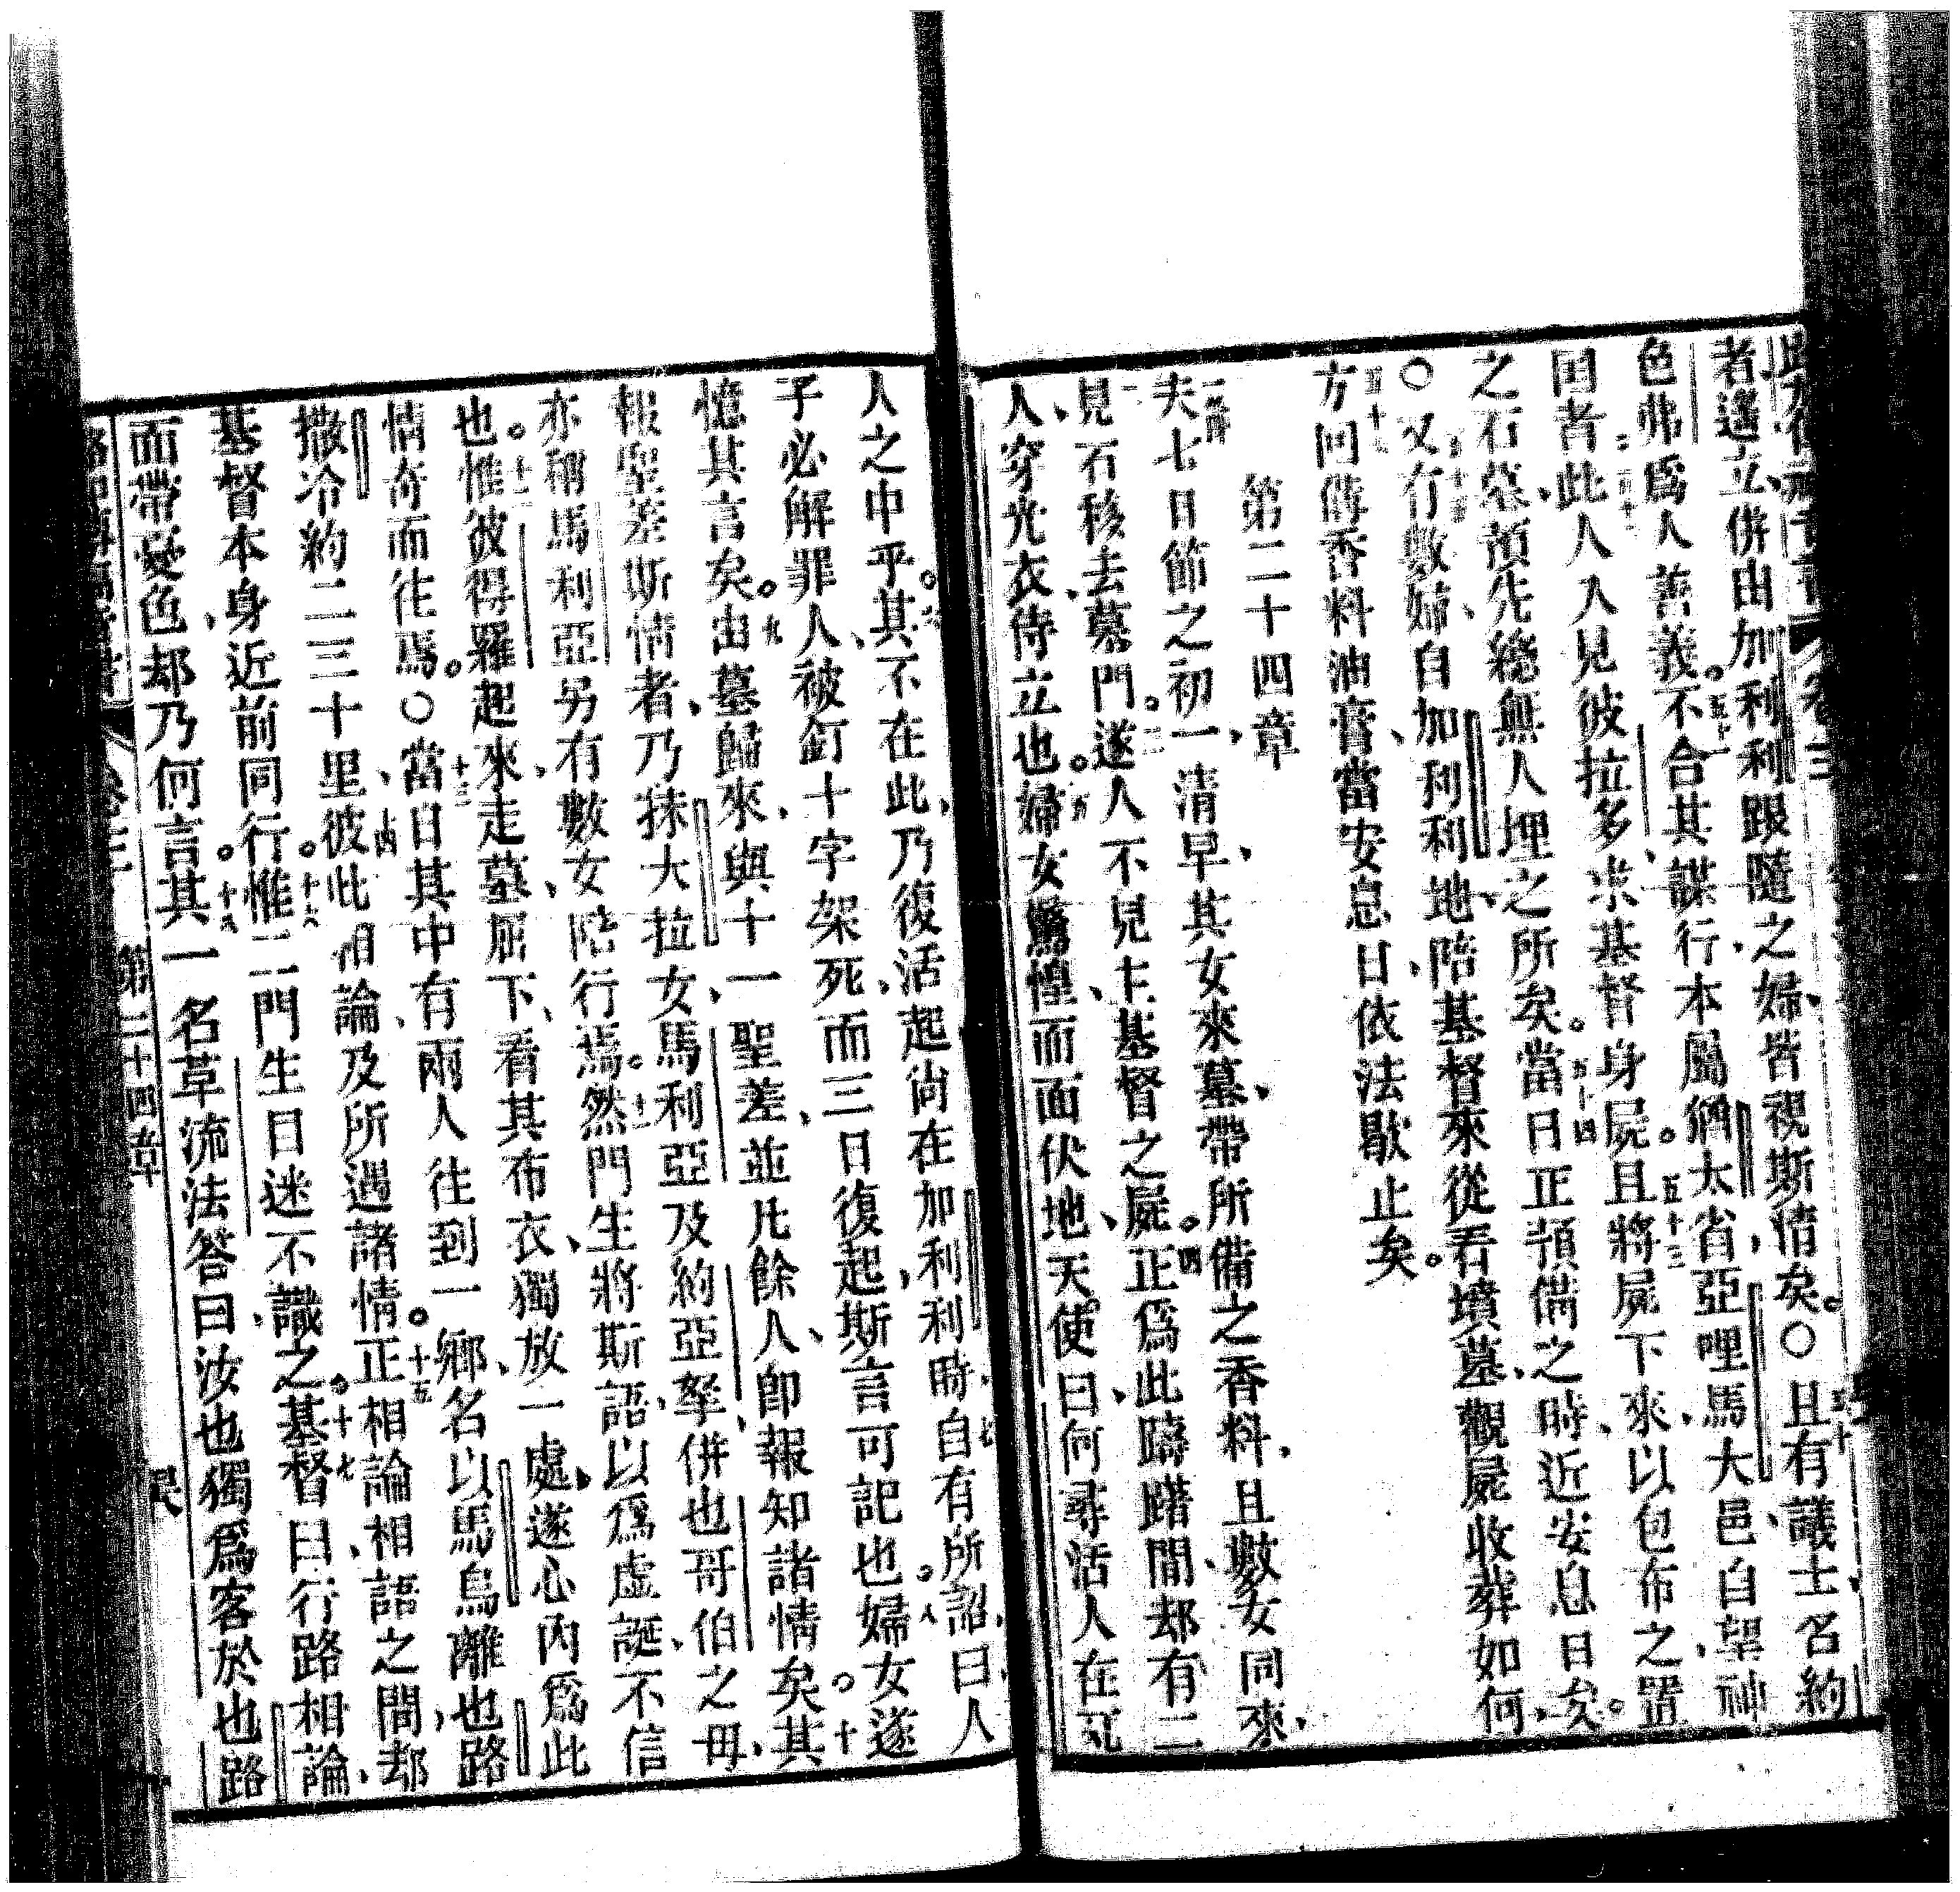 者遙立、併由加利利跟隨之婦、皆視斯情矣。〇五十且有議士、名約
色弗爲人善義。五十一不合其謀行、本屬猶太省、亞哩馬大邑、自望神
國者。五十二此人入見彼拉多、求基督身屍。五十三且將屍下來、以包布之、置
之石墓、預先總無人埋之所矣。五十四當日正預備之時、近安息日矣。
〇五十五又有數婦、自加利利地、陪基督來、從看墳墓、觀屍收葬如何、
五十六方回備香料油膏、當安息日、依法歇止矣。
第二十四章
一節夫七日節之初一、清早、其女來墓、帶所備之香料、且數女同來、
二見石移去墓門。三遂人不見主基督之屍。四正爲此躊躇間、却有二
人、穿光衣、侍立也。五婦女驚惶、而面伏地、天使曰、何尋活人在死
人之中乎。六其不在此、乃復活起、尚在加利利時、七自有所詔、曰、人
子必解罪人、被釘十字架死、而三日復起、斯言可記也。八婦女遂
憶其言矣。九由墓歸來、與十一聖差、並凡餘人、卽報知諸情矣。十其
報聖差斯情者、乃抹大拉女、馬利亞及約亞拏、併也哥伯之母、
亦稱馬利亞、另有數女陪行焉。十一然門生將斯語、以爲虛誕、不信
也。十二惟彼得羅起來、走墓、屈下、看其布衣、獨放一處、遂心內爲此
情奇而往焉。〇十三當日其中有兩人往到一鄉、名以馬烏、離也路
撒冷約二三十里、十四彼此相論、及所遇諸情。十五正相論相語之間、却
基督本身近前同行。十六惟二門生目迷不識之。十七基督曰、行路相論、
面帶憂色、却乃何言。十八其一名革流法答曰、汝也獨爲客於也路
第二十四章